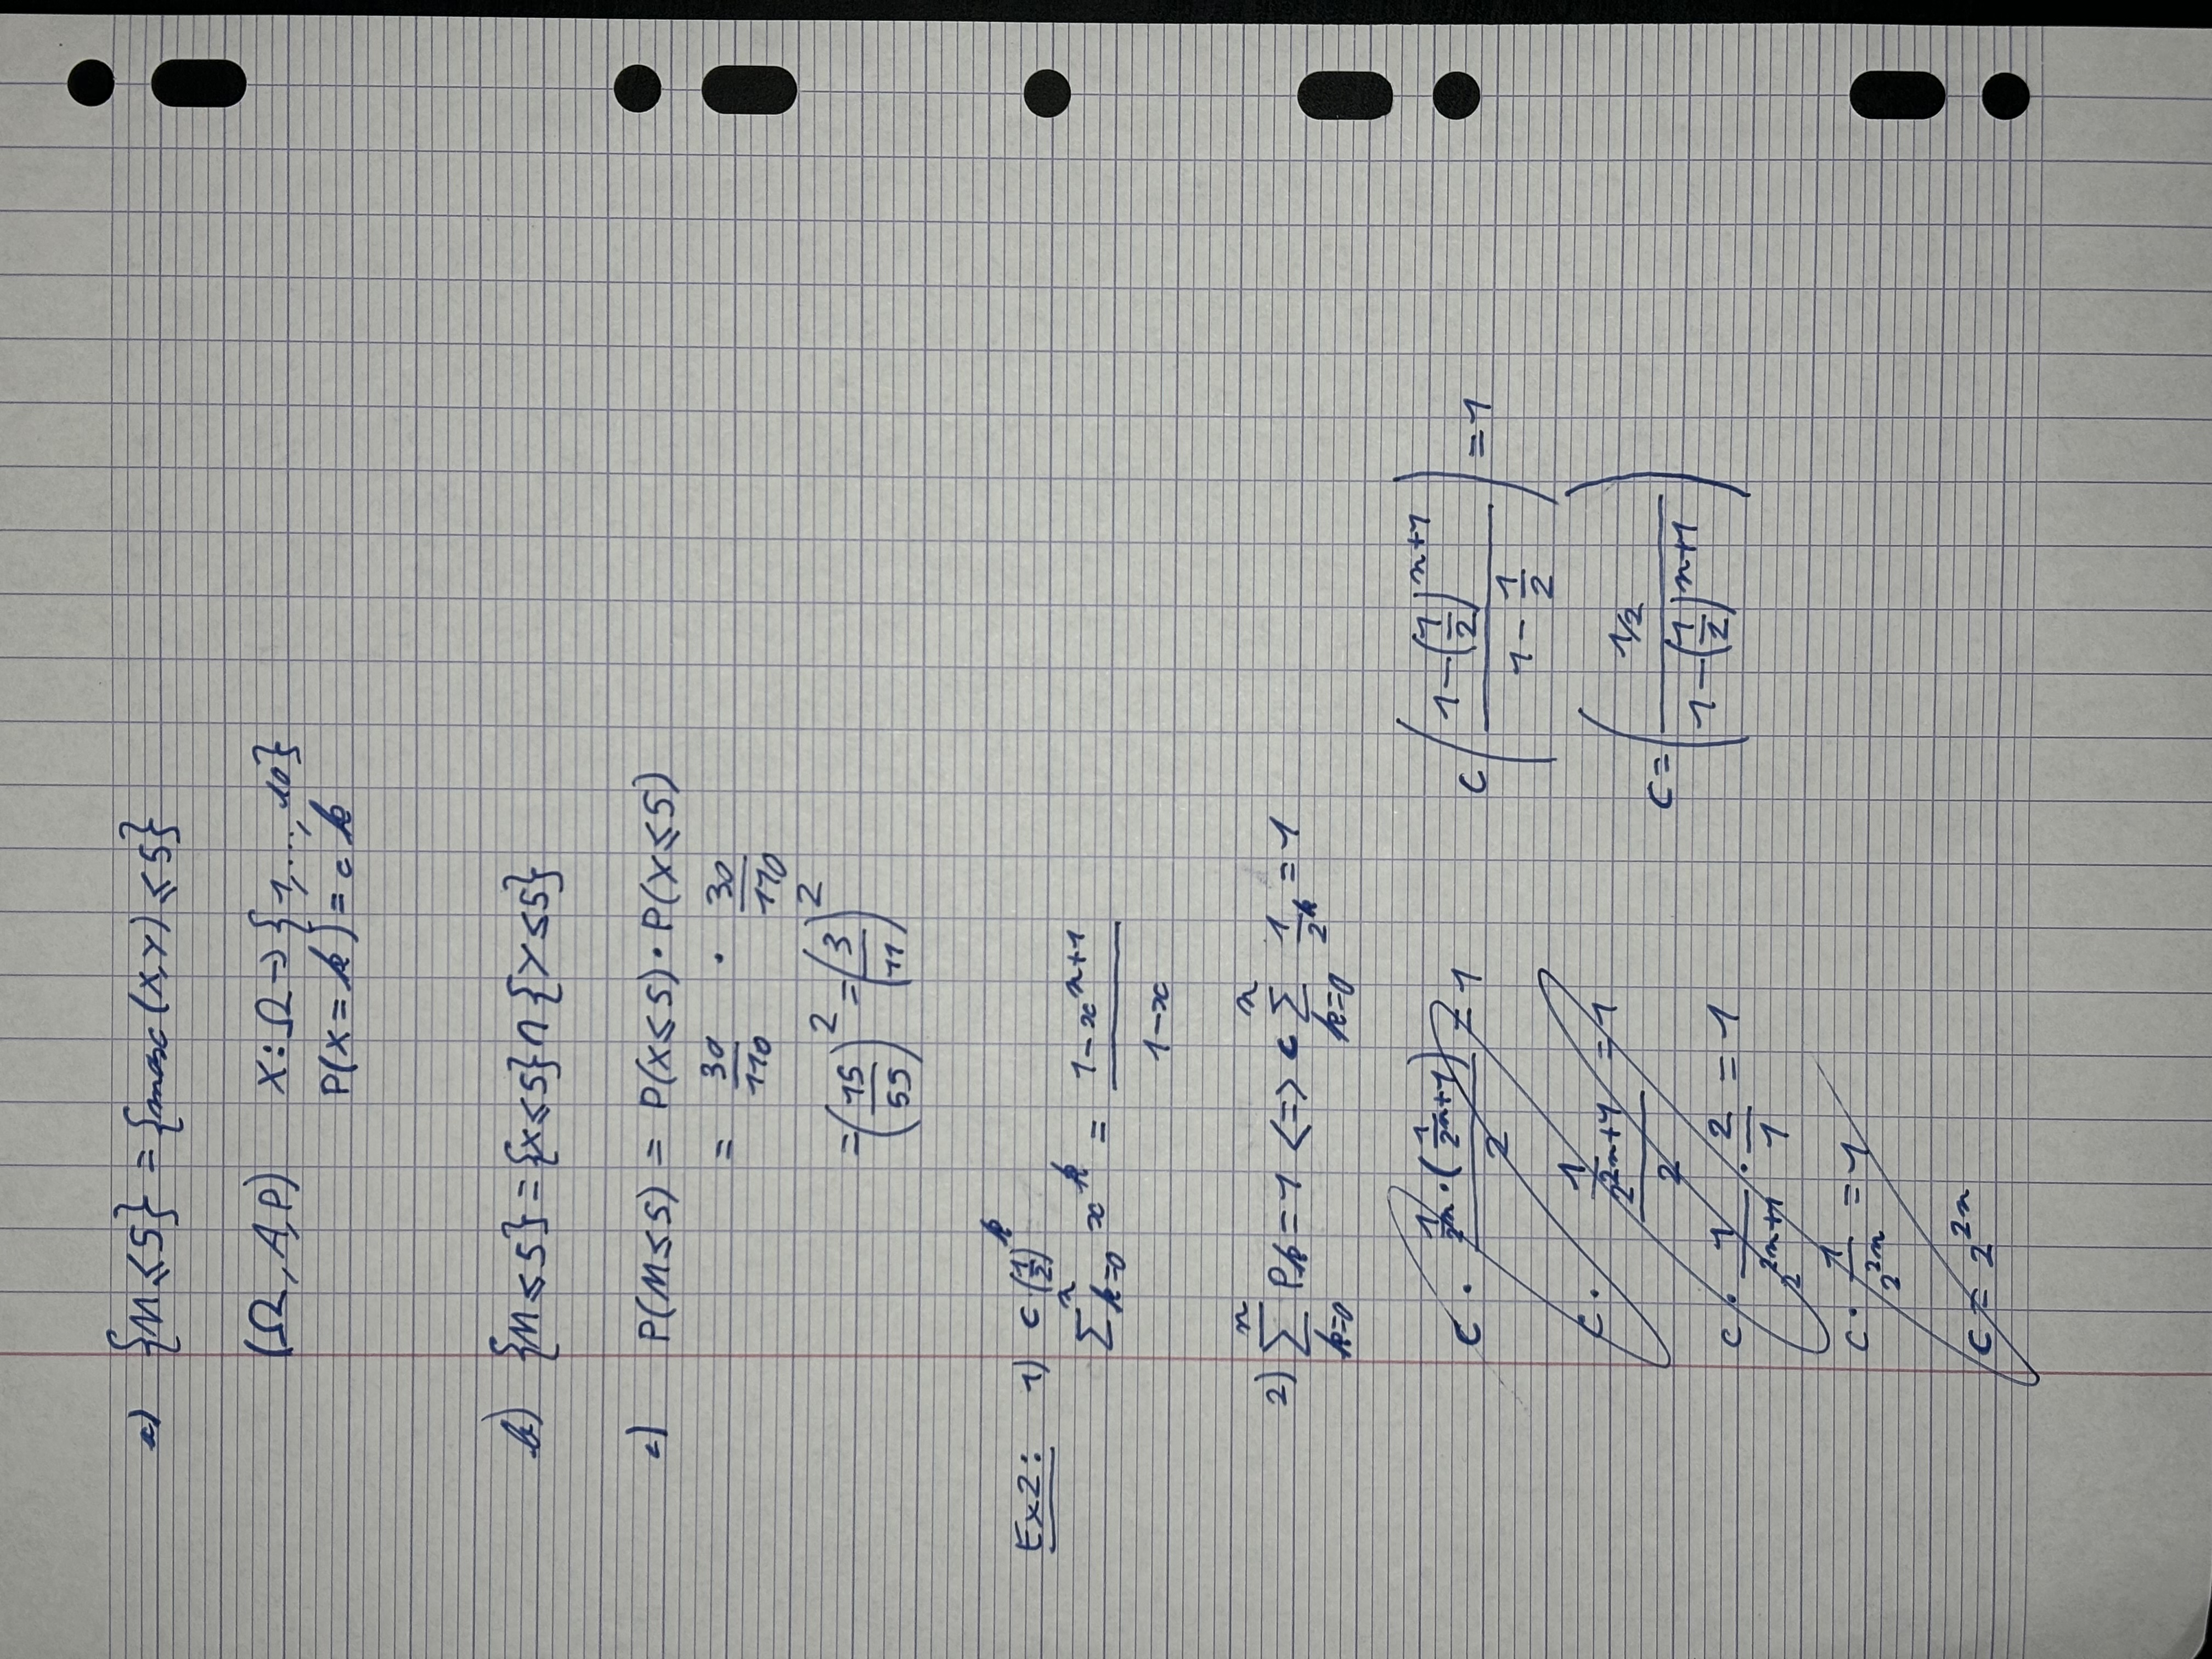 a) {M ⩽ 5} = {max(X,Y) ⩽ 5}
(Ω, A, P) X : Ω → {1, ..., 10}
P(X = k) = c k
b) {M ⩽ 5} = {X ⩽ 5} ∩ {Y ⩽ 5}
c) P(M ⩽ 5) = P(X ⩽ 5) · P(X ⩽ 5)
= 30/110 · 30/110
= (15/55)^2 = (3/11)^2
Ex2: 1) c (1/2)^k
∑_{k=0}^{n} x^k = (1 - x^{n+1})/(1 - x)
2) ∑_{k=0}^{n} P_k = 1 <=> c ∑_{k=0}^{n} 1/2^k = 1
c · (1/2^n · (1/2^n + 1))/2 = 1
c · (1/2^{2n+1})/2 = 1
c · 1/2^{2n+1} · 2/1 = 1
c · 1/2^{2n} = 1
c = 2^{2n}
c ((1 - (1/2)^{n+1})/(1 - 1/2)) = 1
c = ((1/2)/(1 - (1/2)^{n+1}))